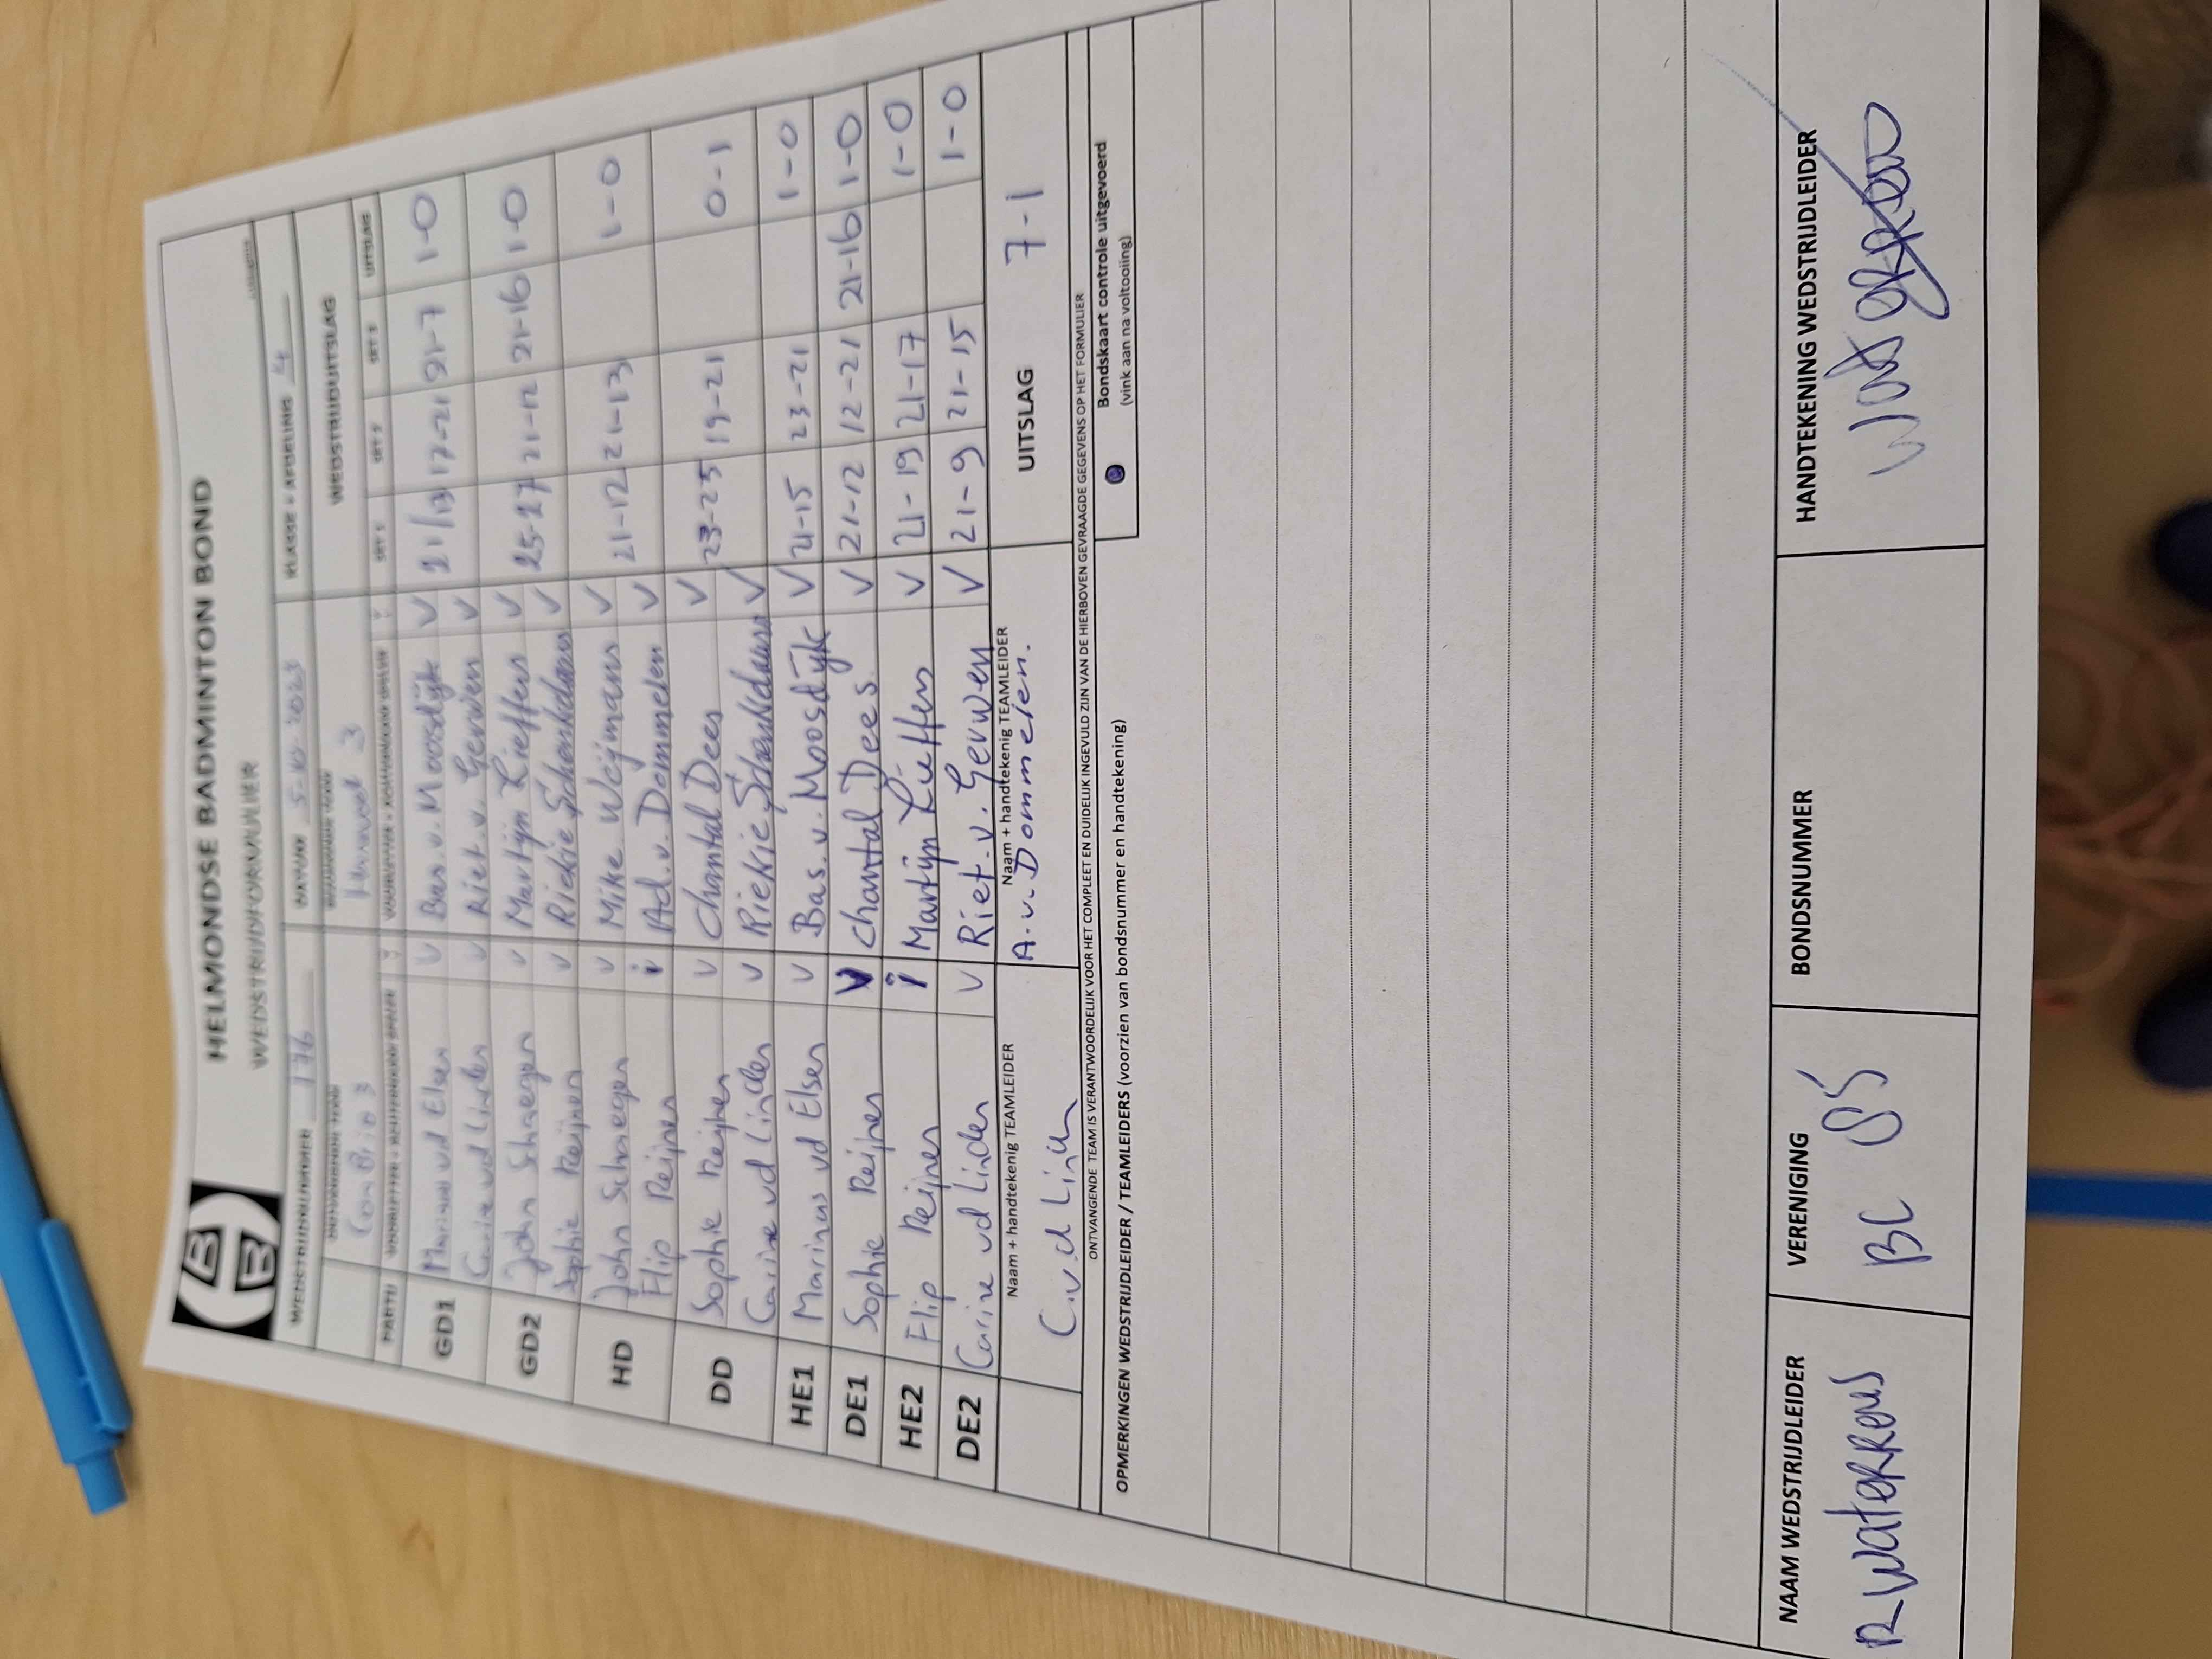 HELMONDSE BADMINTON BOND
WEDSTRIJDFORMULIER
WEDSTRIJDNUMMER 176 DATUM 5-10-2023 KLASSE + AFDELING 4
WEDSTRIJDUITSLAG
PARTIJ SET 1 SET 2 SET 3 UITSLAG
GD1 Marinus vd Elsen V Bas. v. Moosdijk V 21/13 17-21 21-7 1-0
Carine vd Linden V Riet. v. Gerwen V
GD2 John Schaegen V Martijn Lieffers V 25-27 21-12 21-16 1-0
Sophie Reijnen V Riekie Schenkelaars V
HD John Schaegen V Mike Weijmans V 21-12 21-13 1-0
Flip Reijnen v Ad. v. Dommelen V
DD Sophie Reijnen V Chantal Dees V 23-25 19-21 0-1
Carine vd Linden V Riekie Schenkelaars V
HE1 Marinus vd Elsen V Bas. v. Moosdijk V 21-15 23-21 1-0
DE1 Sophie Reijnen V Chantal Dees. V 21-12 12-21 21-16 1-0
HE2 Flip Reijnen v Martijn V 21-19 21-17 1-0
DE2 Carine vd Linden V Riet. v. Gerwen V 21-9 21-15 1-0
Naam + handtekenig TEAMLEIDER Naam + handtekenig TEAMLEIDER UITSLAG 7-1
C.v.d Linden A. v. Dommelen.
ONTVANGENDE TEAM IS VERANTWOORDELIJK VOOR HET COMPLEET EN DUIDELIJK INGEVULD ZIJN VAN DE HIERBOVEN GEVRAAGDE GEGEVENS OP HET FORMULIER
Bondskaart controle uitgevoerd
(vink aan na voltooiing)
OPMERKINGEN WEDSTRIJDLEIDER / TEAMLEIDERS (voorzien van bondsnummer en handtekening)
NAAM WEDSTRIJDLEIDER VERENIGING BONDSNUMMER HANDTEKENING WEDSTRIJDLEIDER
R WATERREUS BC 85